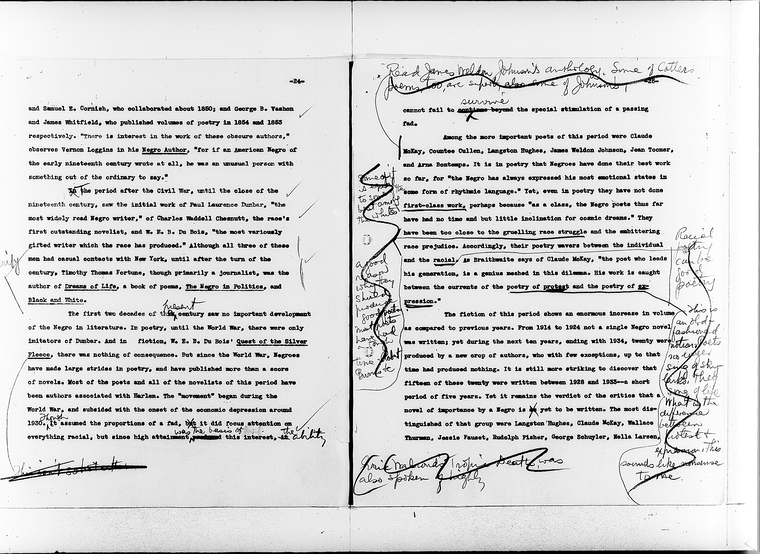 -24-
and Samuel E. Cornish, who collaborated about 1850; and George B. Vashon
and James Whitfield, who published volumes of poetry in 1854 and 1853
respectively. "There is interest in the work of these obscure authors,"
observes Vernon Loggins in his Negro Author, "for if an American Negro of
the early nineteenth century wrote at all, he was an unusual person with
something out of the ordinary to say."
the period after the Civil War, until the close of the
nineteenth century, saw the initial work of Paul Laurence Dunbar, "the
most widely read Negro writer," of Charles Waddell Chesnutt, the race's
first outstanding novelist, and W. E. B. Du Bois, "the most variously
gifted writer which the race has produced." Although all three of these
men had casual contacts with New York, until after the turn of the
century, Timothy Thomas Fortune, though primarily a journalist, was the
author of Dreams of Life, a book of poems, The Negro in Politics, and
Black and White.
present
The first two decades of century saw no important development
of the Negro in literature. In poetry, until the World War, there were only
imitators of Dunbar. And in fiction, W. E. B. Du Bois' Quest of the Silver
Fleece, there was nothing of consequence. But since the World War, Negroes
have made large strides in poetry, and have published more than a score
of novels. Most of the poets and all of the novelists of this period have
been authors associated with Harlem. The "movement" began during the
World War, and subsided with the onset of the economic depression around
Though
1930. It assumed the proportions of a fad, but it did focus attention on
was the basis of the ability
everything racial, but since high attainment, this interest,
Read James Weldon Johnson's anthology. Some of Cotter's
poems, too, are superb, also some of Johnson's,
survive
cannot fail to continue beyond the special stimulation of a passing
fad.
Among the more important poets of this period were Claude
McKay, Countee Cullen, Langston Hughes, James Weldon Johnson, Jean Toomer,
and Arna Bontemps. It is in poetry that Negroes have done their best work
so far, for "the Negro has always expressed his most emotional states in
some form of rhythmic language." Yet, even in poetry they have not done
first-class work, perhaps because "as a class, the Negro poets thus far
have had no time and but little inclination for cosmic dreams." They
have been too close to the gruelling race struggle and the embittering
race prejudice. Accordingly, their poetry wavers between the individual
and the racial. As Braithwaite says of Claude McKay, "the poet who leads
his generation, is a genius meshed in this dilemma. His work is caught
between the currents of the poetry of protest and the poetry of ex-
pression."
The fiction of this period shows an enormous increase in volume
as compared to previous years. From 1914 to 1924 not a single Negro novel
was written; yet during the next ten years, ending with 1934, twenty were
produced by a new crop of authors, who with few exceptions, up to that
time had produced nothing. It is still more striking to discover that
fifteen of these twenty were written between 1928 and 1933--a short
period of five years. Yet it remains the verdict of the critics that a
novel of importance by a Negro is yet to be written. The most dis-
tinguished of that group were Langston Hughes, Claude McKay, Wallace
Thurman, Jessie Fauset, Rudolph Fisher, George Schuyler, Nella Larsen,
Racial
poetry
can be
good
poetry
This is
an old-
fashioned
notion poets
no longer
sing of sky-
larks. They
sing of life
What is the
difference
between
protest &
expression. This
sounds like nonsense
to me.
a good
reason
why they
should
produce
good
have had
time
Tropic Death, was
also spoken of highly